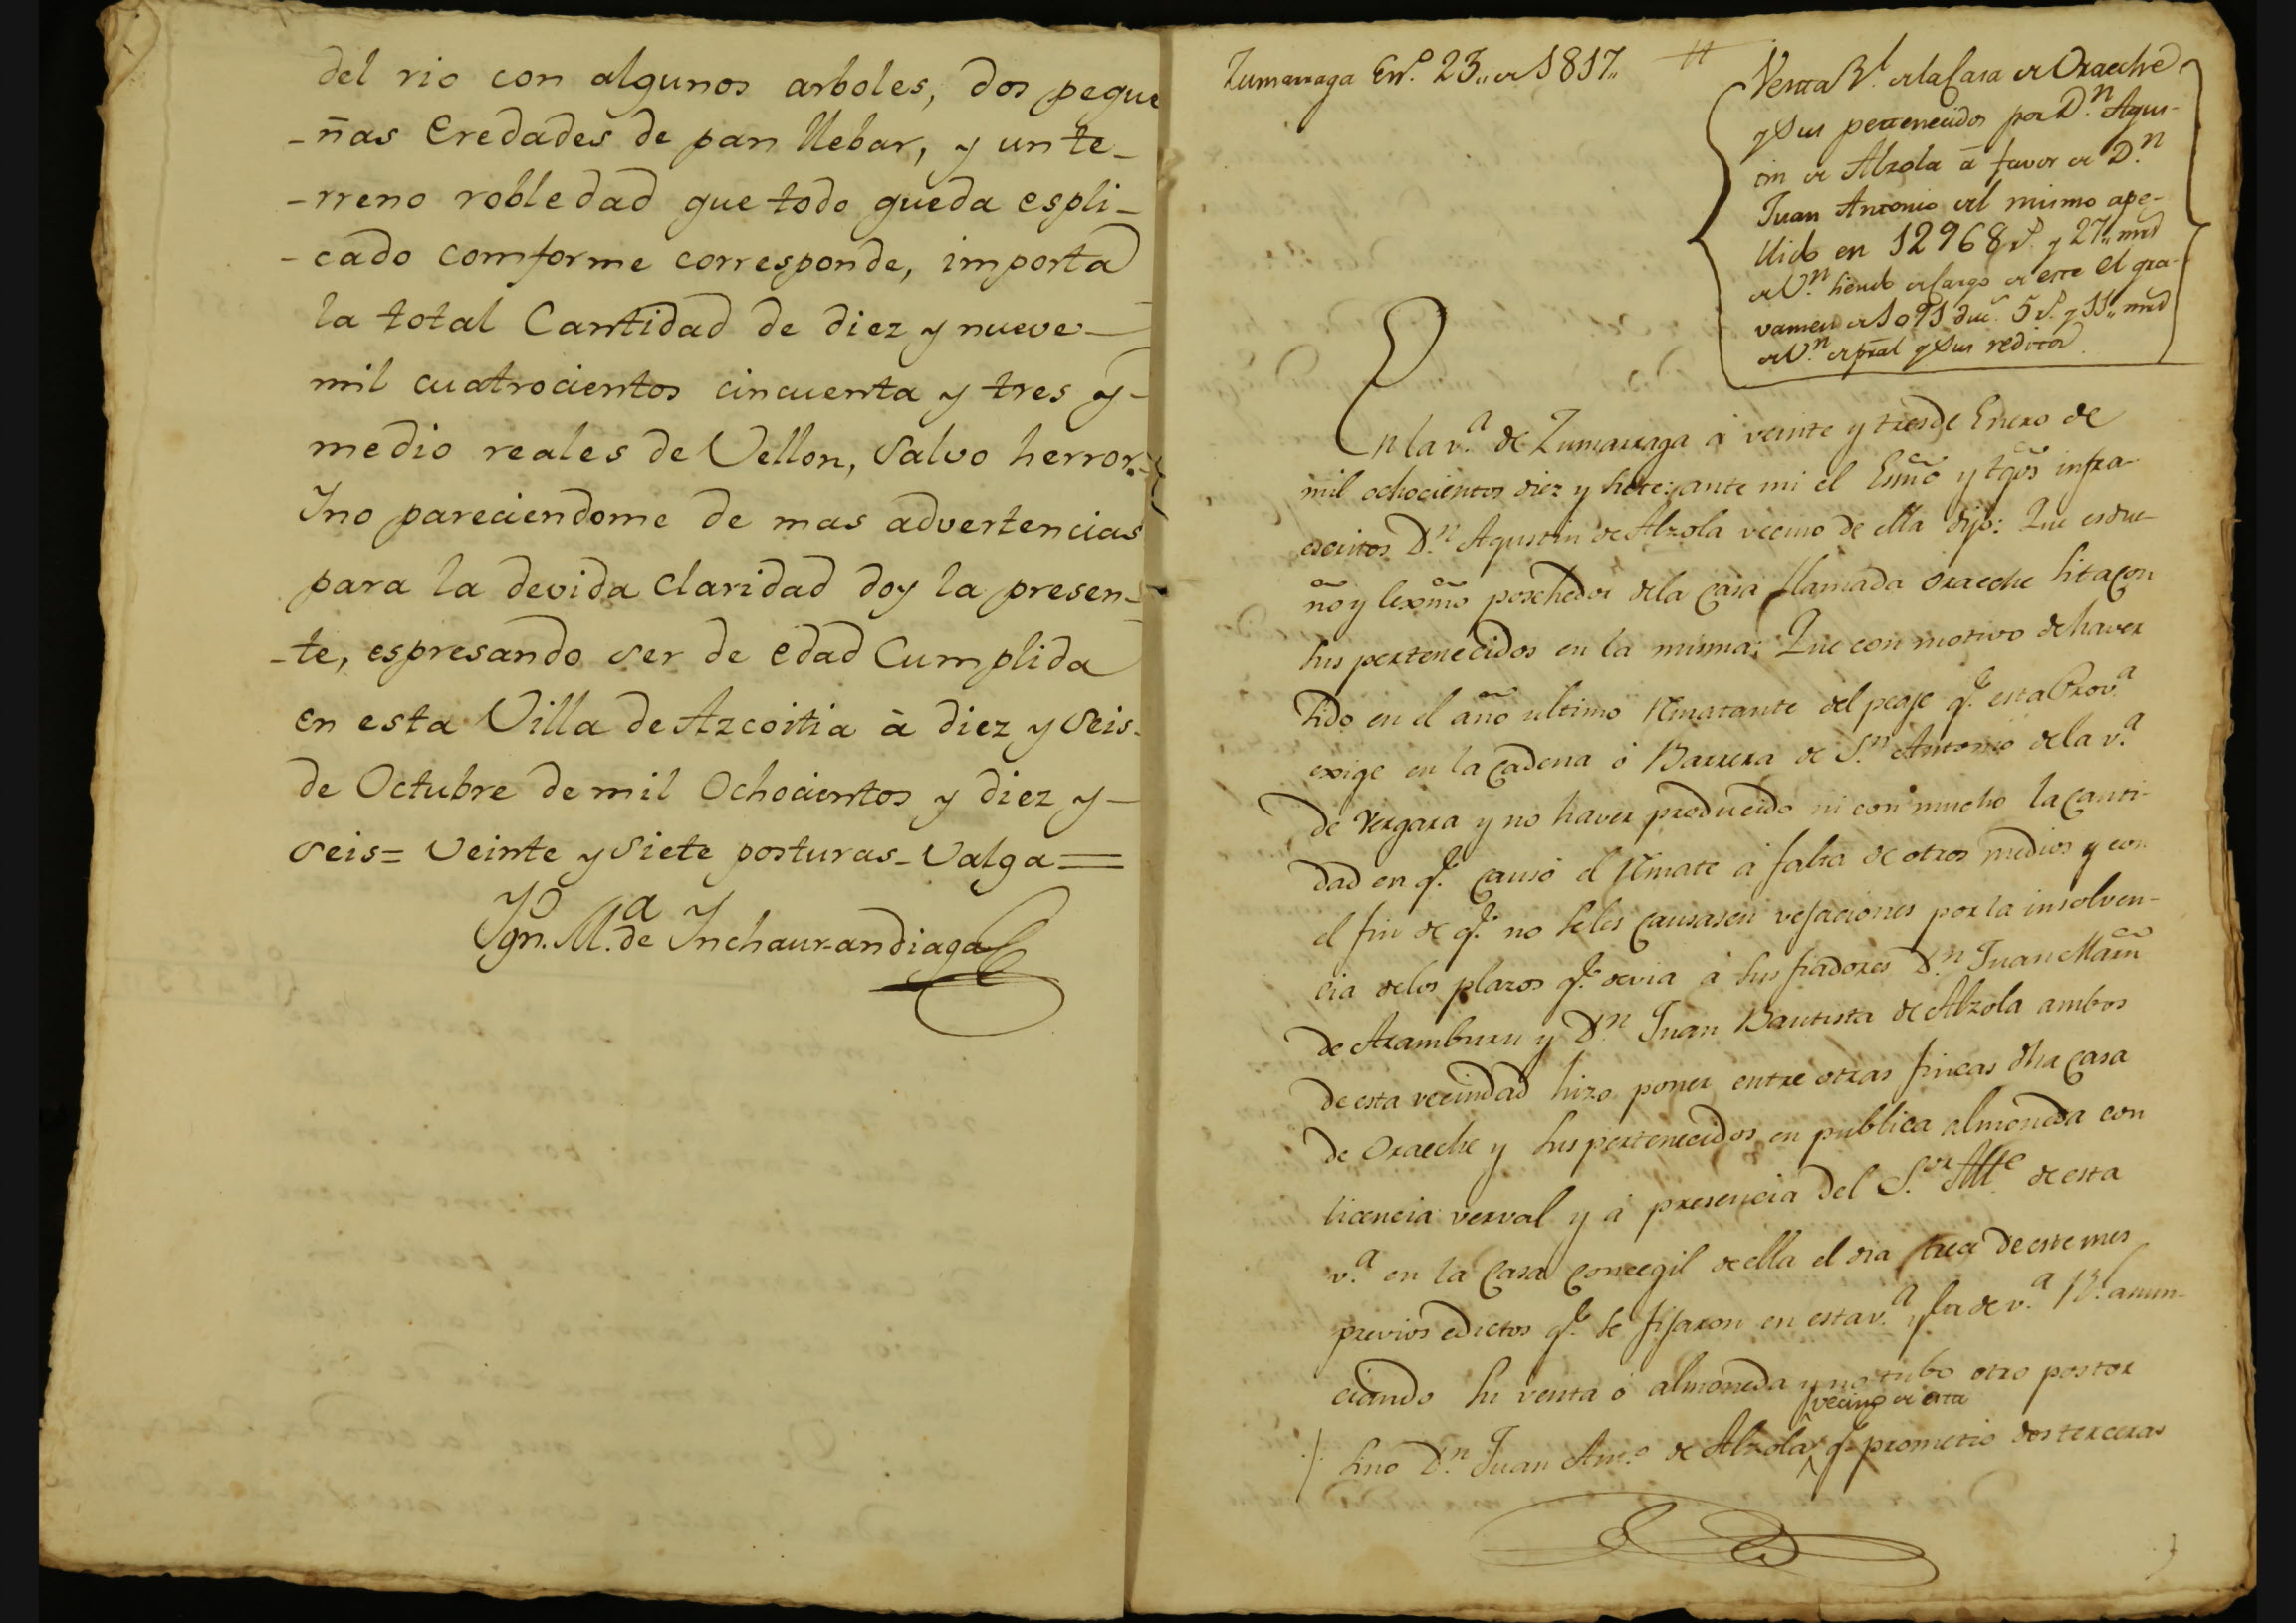 del rio con algunos arboles, dos peque
-ñas Eredades de pan llebar, y un te-
-rreno robledad que todo queda espli-
-cado comforme corresponde, importa
la total Cantidad de diez y nueve
mil cuatrocientos cincuenta y tres y-
medio reales de Vellon, salvo herror.
Yno pareciendome de mas advertencias
para la devida claridad doy la presen-
-te, espresando ser de edad Cumplida
en esta Villa de Azcoitia à diez y seis.
de Octubre de mil Ochocientos y diez y-
seis= Veinte y siete posturas-Valga=
Ygn.º M.ª de Ynchaurandiaga
Zumarraga En.º 23,, de 1817,,
Venta Rl. de la Casa de Oraeche
y sus pertenecidos por D.n Agus-
tin de Alzola á favor de D.n
Juan Antonio del mismo ape-
llido en 12968 rs. y 27,, mrs
de V.n siendo de cargo de este el gra-
vamen de 1091 duc.s 5 rs. y 11,, mrs
de V.n de pral y sus reditos.
En la v.a de Zumarraga á veinte y tres de Enero de
mil ochocientos diez y siete: ante mi el Essño y tgos infra-
escritos D.n Agustin de Alzola vecino de ella dijo: Que es due-
ño y lexmo poschedor de la casa llamada Oraeche sita con
sus pertenecidos en la misma: Que con motivo de haver
sido en el año ultimo Rematante del peage q.e esta Prov.a
exige en la Cadena ó Barrera de S.n Antonio de la v.a
de Vergara y no haver producido ni con mucho la canti-
dad en q.e causó el Remate á falta de otros medios y con
el fin de q.e no se les causasen vejaciones por la insolven-
cia de los plazos q.e devia á sus fiadores D.n Juan Martn
de Aramburu y D.n Juan Bautista de Alzola ambos
de esta vecindad hizo poner entre otras fincas dha casa
de Oraeche y sus pertenecidos en publica almoneda con
licencia verval y á presencia del S.or Alte de esta
v.a en la Casa Concegil de ella el dia trece de este mes
previos edictos q.e se fijaron en esta v.a y la de v.a Rl. anun-
ciando su venta ó almoneda y no tubo otro postor
vecino de esta
sino D.n Juan Ant.o de Alzola q.e prometió dos terceras